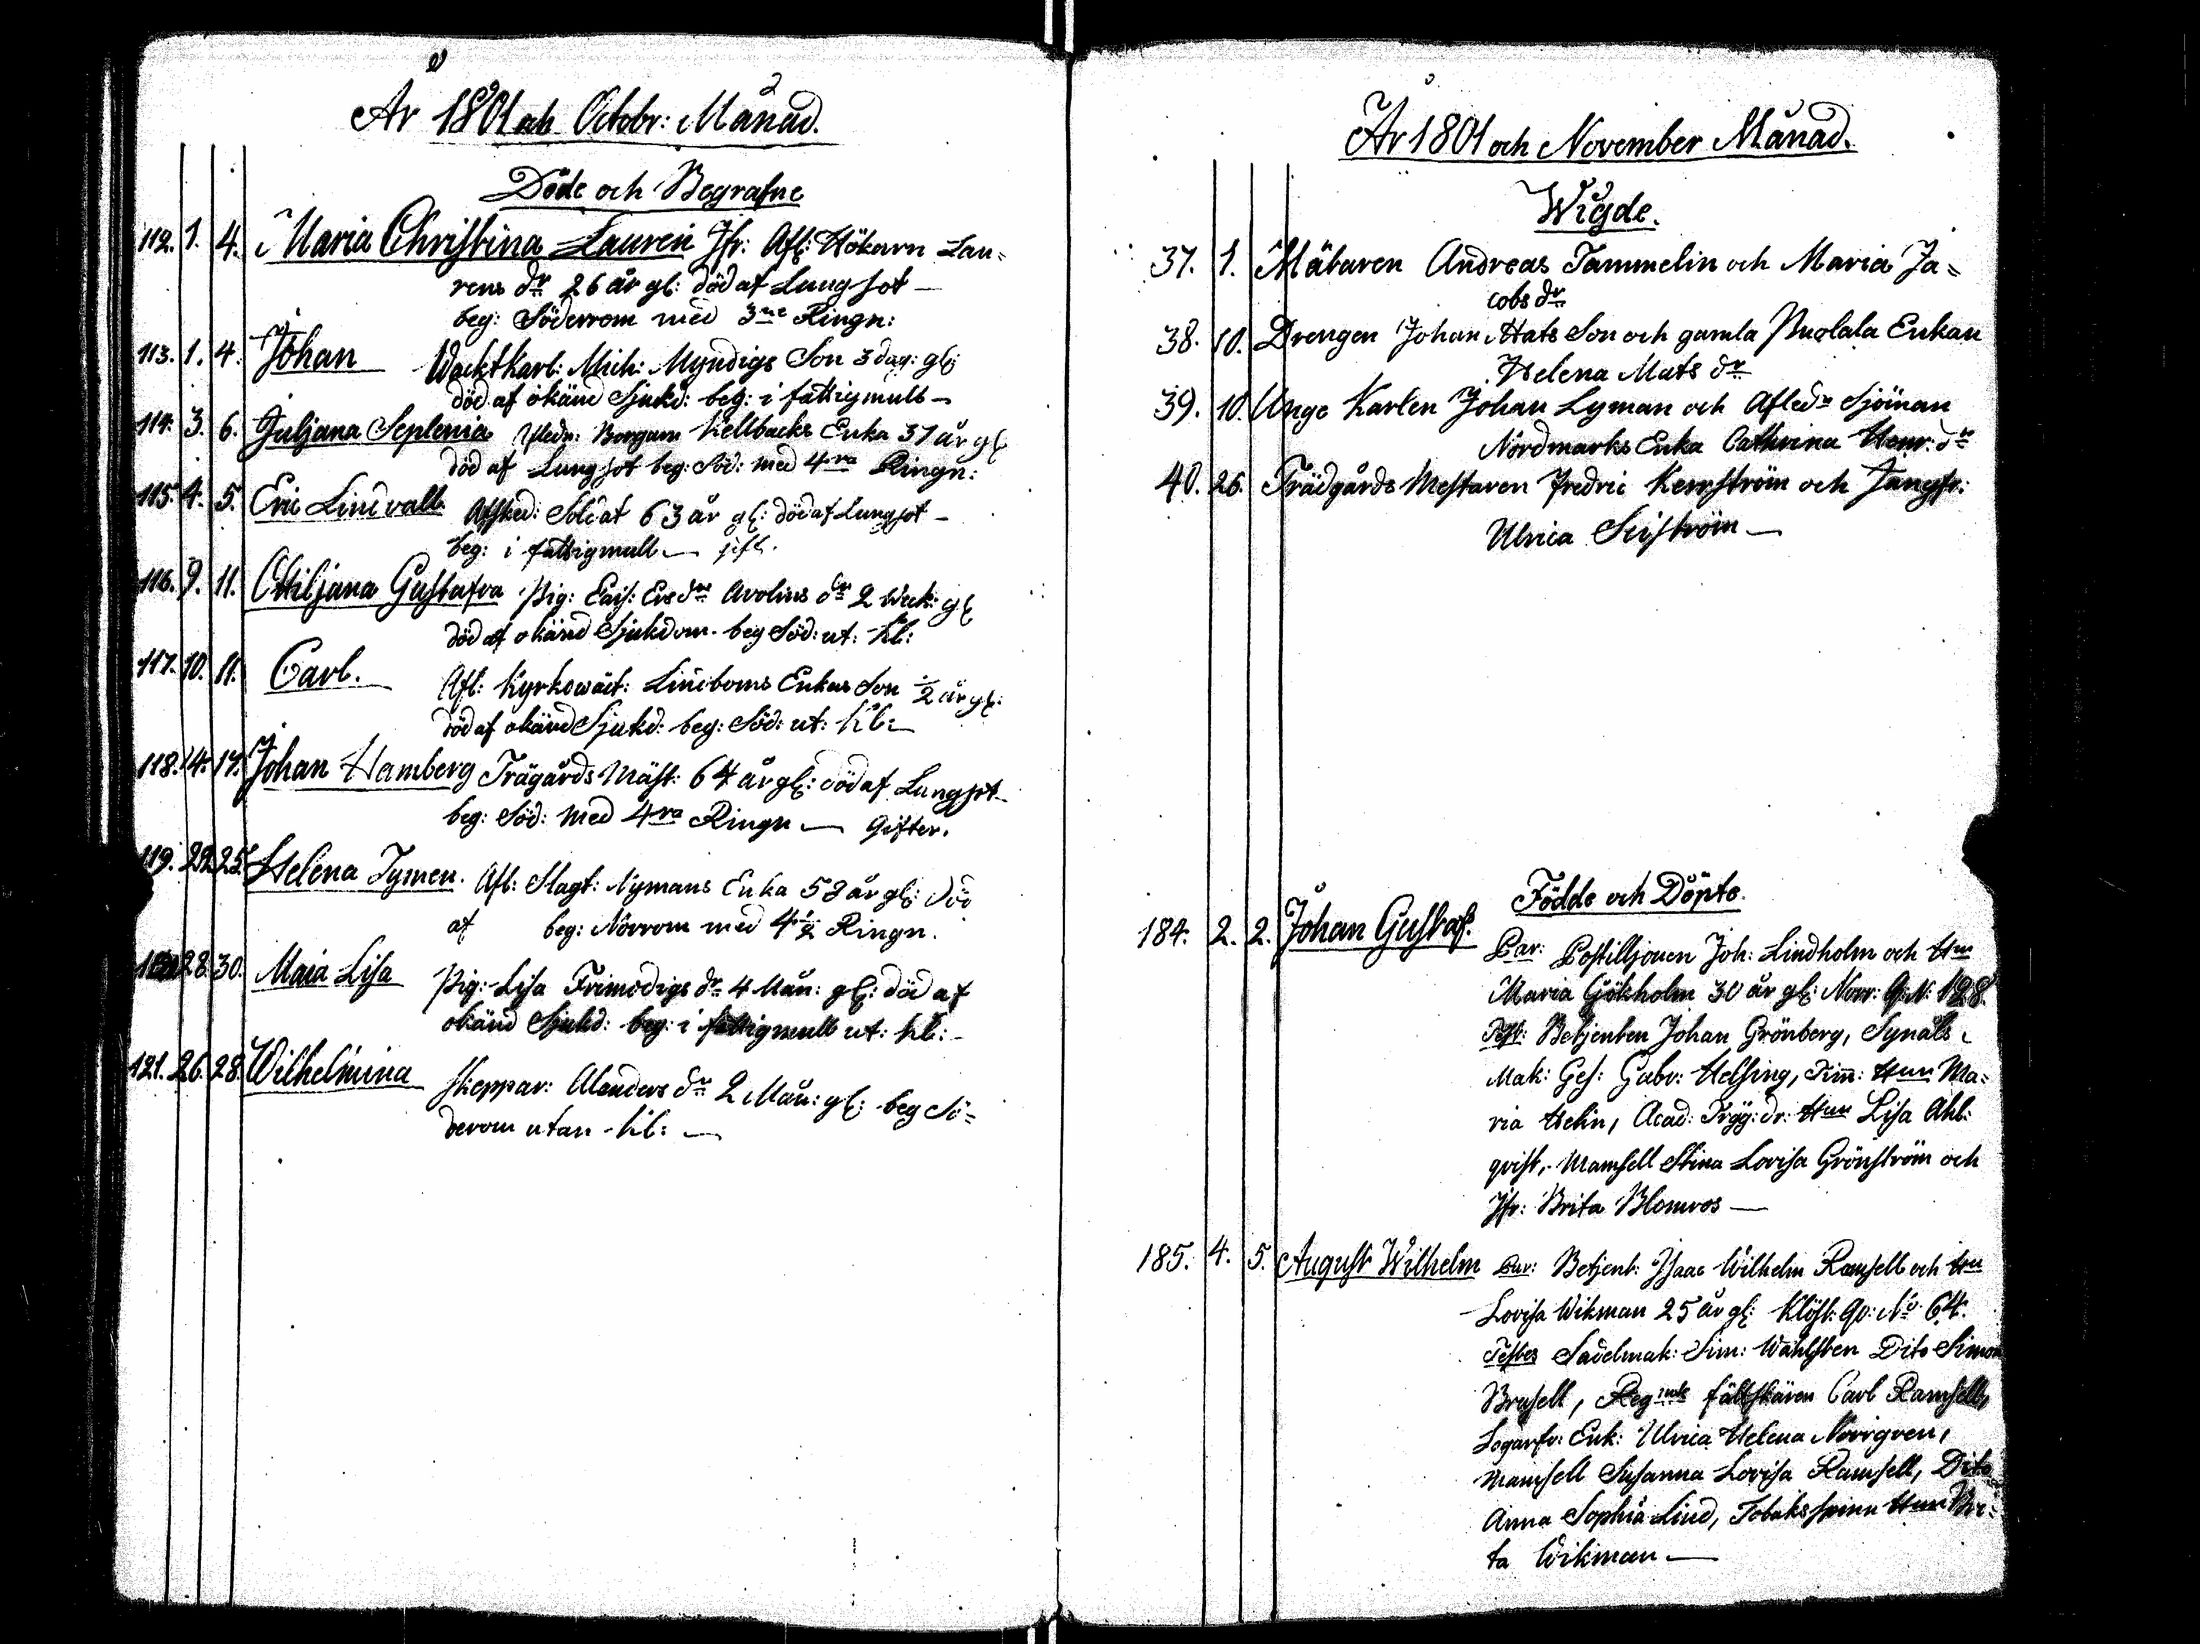 År 1801 och Octobr: Månad.
Döde och Begrafne
112. 1. 4. Maria Christina Lauren Jfr: Afl: Hökarn Lau=
rens dr 26 år gl: död af Lungsot —
beg: Söderrom med 3ne Ringn:
113. 1. 4. Johan Wacktkarl: Mich: Myndigs Son 3 dag: gl:
död af okänd Sjukd: beg: i fattigmull —
114. 3. 6. Juljana Seplenia Afledn: Borgarn Kellbacks Enka 37 år gl
död af Lungsot beg: Söd: med 4ra Ringn:
115. 4. 5. Eric Lindvall Afsked: Soldat 63 år gl: död af Lungsot —
beg: i fattigmull — gift.
116. 9. 11. Ottiljana Gustafva Pig: Cais: Ersdr Arolins dr 2 Weck: gl
död af okänd Sjukdom. beg Söd: ut: kl:
117. 10. 11. Carl. Afl: Kyrkowäct: Lindboms Enkas Son ½ år gl:
död af okänd Sjukd: beg: Söd: ut: kl: —
118. 14. 17. Johan Hamberg Trägårds Mäst: 64 år gl: död af Lungsot —
beg: Söd: med 4ra Ringn — Gifter.
119. 22. 25. Helena Tymen. Afl: Slagt: Nymans Enka 58 år gl: död
af beg: Norrom med 4½ Ringn.
28. 30. Maia Lisa Pig: Lisa Frimodigs dr 4 Mån: gl: död af
okänd Sjukd: beg: i fattigmull ut: kl: —
121. 26. 28. Wilhelmina Skeppar: Alanders dr 2 Mån: gl: beg Sö=
derom utan kl: —
År 1801 och November Månad.
Wigde.
37. 1. Mätaren Andreas Tammelin och Maria Ja=
cobs dr
38. 10. Drengen Johan Mats Son och gamla Puolala Enkan
Helena Mats dr
39. 10. Unge Karlen Johan Lyman och Afledn Sjöman
Nordmarks Enka Cathrina Henr: dr
40. 26. Trädgårds Mestaren Fredric Kernström och Jungfr:
Ulrica Seiström —
Födde och Döpte.
184. 2. 2. Johan Gustaf. Par: Postilljonen Joh: Lindholm och Hun
Maria Gökholm 30 år gl: Norr: Q: N: 128.
Test: Betjenten Johan Grönberg, Synåls
Mak: Ges: Gabr: Helsing, Tim: Hun Ma=
ria Helin, Acad: Trÿg: dr: Hun Lisa Ahl:
qvist, Mamsell Stina Lovisa Grönström och
Jfr: Brita Blomros —
185. 4. 5. August Wilhelm Par: Betjent: Isaac Wilhelm Ramsell och Hun
Lovisa Wikman 25 år gl: Klöst: Qv: No 64.
Testes Sadelmak: Sim: Wahlsten Dito Simon
Brusell, Regmts fältskären Carl Ramsell,
Logarfv: Enk: Ulrica Helena Norrgren,
Mamsell Susanna Lovisa Ramsell, Dito
Anna Sophia Lind, Tobaksspinn Hun Bri=
ta Wikman —